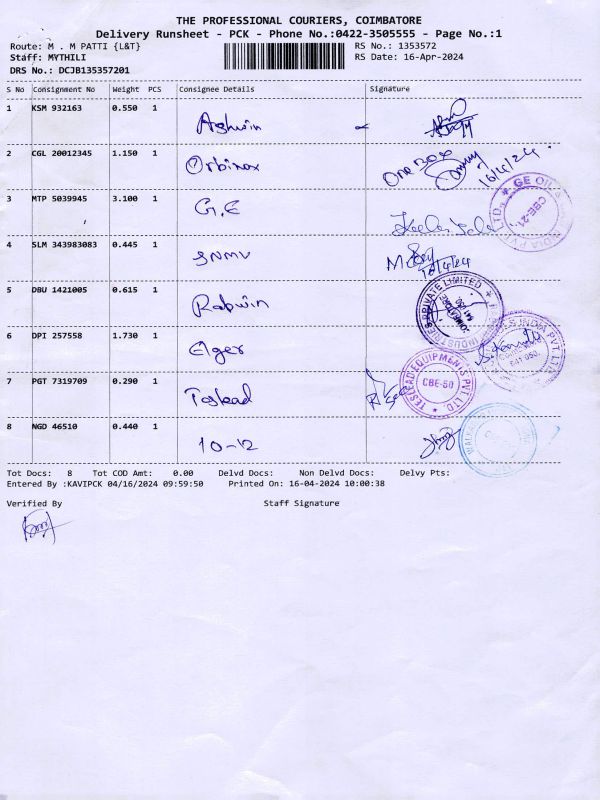 THE PROFESSIONAL COURIERS, COIMBATORE
Delivery Runsheet - PCK - Phone No.:0422-3505555 - Page No.:1
Route: M . M PATTI {L&T} RS No.: 1353572
Staff: MYTHILI RS Date: 16-Apr-2024
DRS No.: DCJB135357201
S No Consignment No Weight PCS Consignee Details Signature
1 KSM 932163 0.550 1 Ashwin
2 CGL 20012345 1.150 1 Orbinox 16/4/24
3 MTP 5039945 3.100 1 G.E
GE OIL CBE-21 INDIA PVT LTD
4 SLM 343983083 0.445 1 SNMV 16/4/24
5 DBU 1421005 0.615 1 Rabwin
INDUSTRIES PRIVATE LIMITED COIMBATORE 641 050
6 DPI 257558 1.730 1 Elger
INDIA PVT LTD 641 050
7 PGT 7319709 0.290 1 Teslead
TESLEAD EQUIPMENTS PVT LTD CBE-50
8 NGD 46510 0.440 1 10-12
Tot Docs: 8 Tot COD Amt: 0.00 Delvd Docs: Non Delvd Docs: Delvy Pts:
Entered By :KAVIPCK 04/16/2024 09:59:50 Printed On: 16-04-2024 10:00:38
Verified By Staff Signature